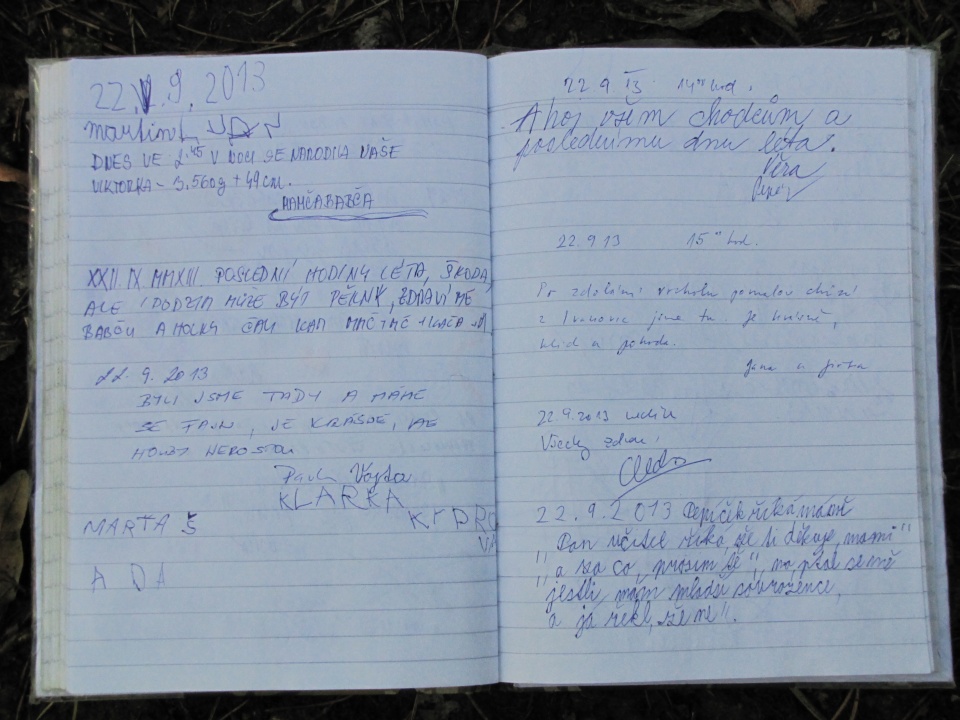 22. 9. 2013
DNES VE 2.45 V NOCI SE NARODILA NAŠE
VIKTORKA - 3.560g + 49cm.
MAMČABABČA
XXII. IX. MMXIII. POSLEDNÍ HODINY LÉTA, ŠKODA,
ALE I PODZIM MŮŽE BÝT PĚKNÝ, ZDRAVÍ MÉ
BABČU A HOLKY
22. 9. 2013
BYLI JSME TADY A MÁME
SE FAJN, JE KRÁSNĚ, ALE
HOUBY NEROSTOU
Pavla Vojta
KLÁRKA
MARŤA Š
ADA
22. 9. 13 14 hod.
Ahoj všem chodcům a
poslednímu dnu léta.
Věra
22. 9. 13 15 hod.
Po zdolání vrcholu pomalou chůzí
z Ivanovic jsme tu. Je krásně,
klid a pohoda.
Jana a
22.9.2013 neděle
Všechny zdraví
22.9.2013 Pepíček říká mámě
"Pan učitel říká, že ti děkuje, mami"
"a za co, prosím tě", no ptal se mě
jestli mám mladší sourozence,
a já řekl, že ne".